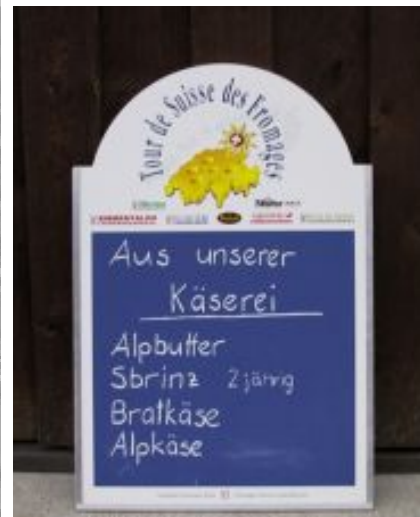 Tour de Suisse des Fromages
EMMENTALER
Aus unserer
Käserei
Alpbutter
Sbrinz 2 jährig
Bratkäse
Alpkäse